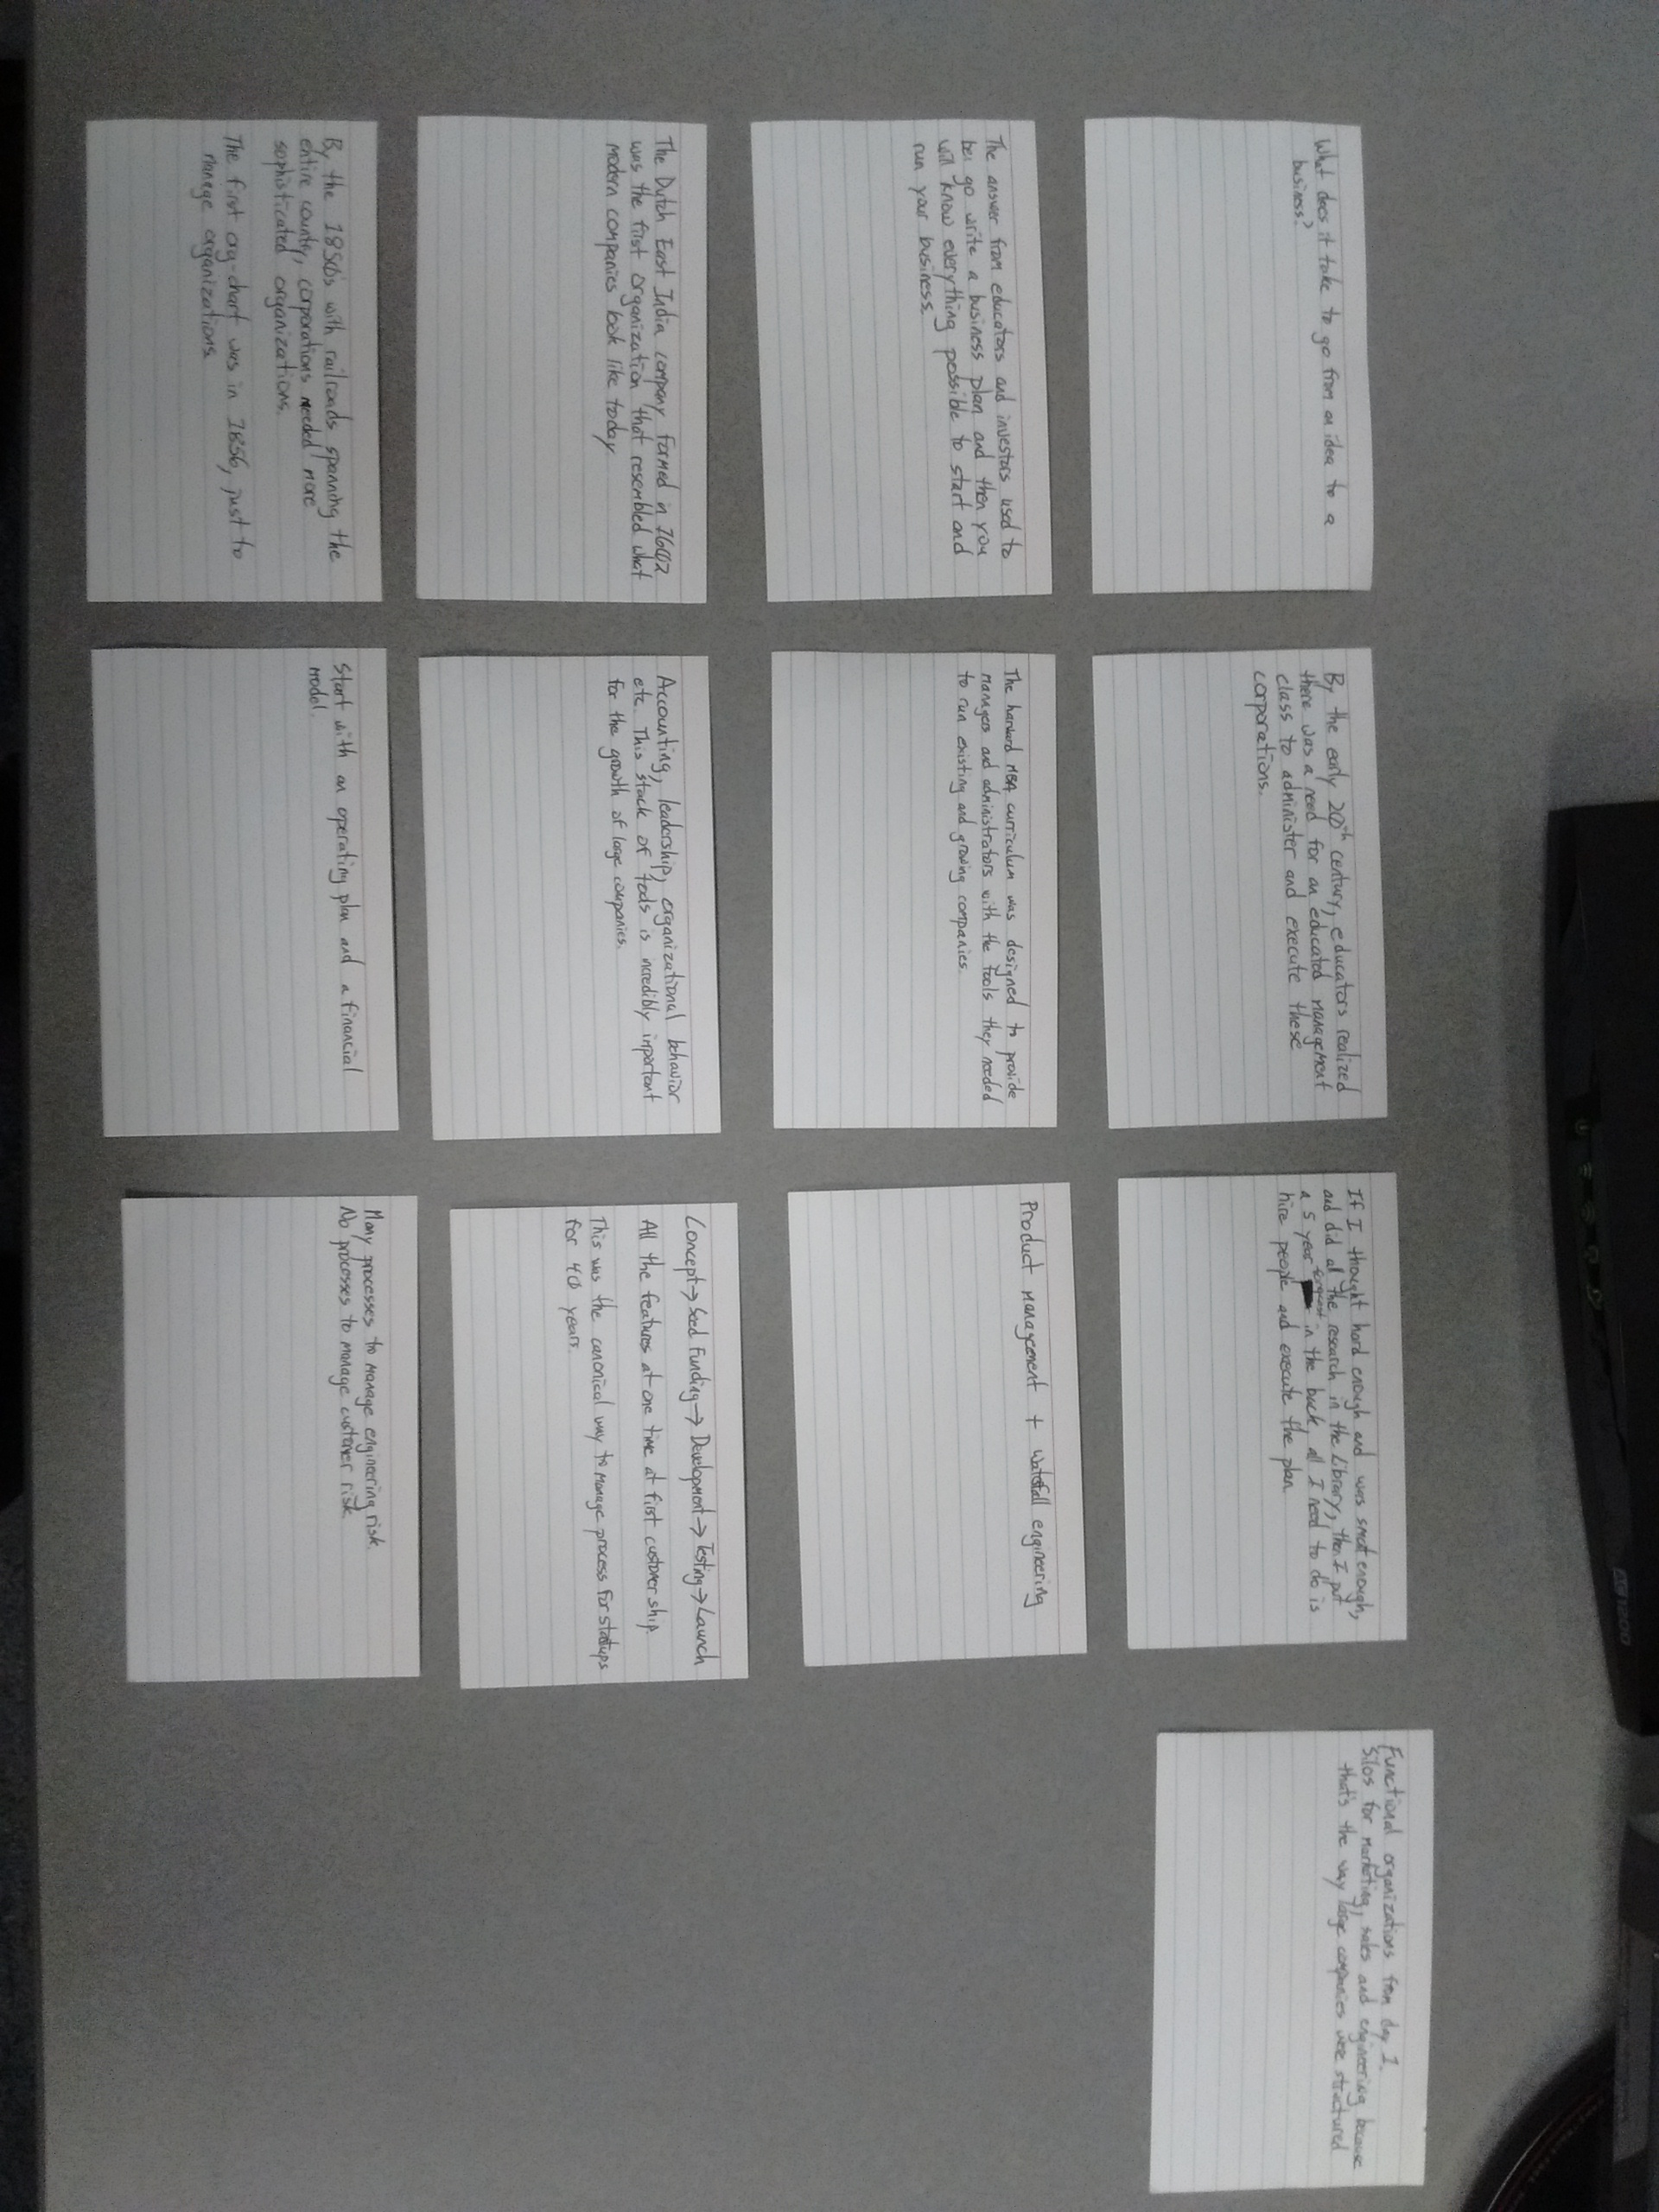 What does it take to go from an idea to a
business?
The answer from educators and investors used to
be: go write a business plan and then you
will know everything possible to start and
run your business.
The Dutch East India company formed in 1602
was the first organization that resembled what
modern companies look like today
By the 1850's with railroads spanning the
entire country, corporations needed more
sophisticated organizations.
The first org-chart was in 1856, just to
manage organizations.
By the early 20th century, educators realized
there was a need for an educated management
class to administer and execute these
corporations.
The harvard MBA curriculum was designed to provide
managers and administrators with the tools they needed
to run existing and growing companies.
Accounting, leadership, organizational behavior
etc. This stack of tools is incredibly important
for the growth of large companies.
Start with an operating plan and a financial
model.
If I thought hard enough and was smart enough,
and did all the research in the Library, then I put
a 5 year in the back, all I need to do is
hire people and execute the plan.
Product management + waterfall engineering
Concept→Seed Funding→Development→Testing→Launch
All the features at one time at first customer ship.
This was the canonical way to manage process for startups
for 40 years.
Many processes to manage engineering risk
No processes to manage customer risk
Functional organizations from day 1.
Silos for marketing, sales and engineering because
that's the way large companies were structured